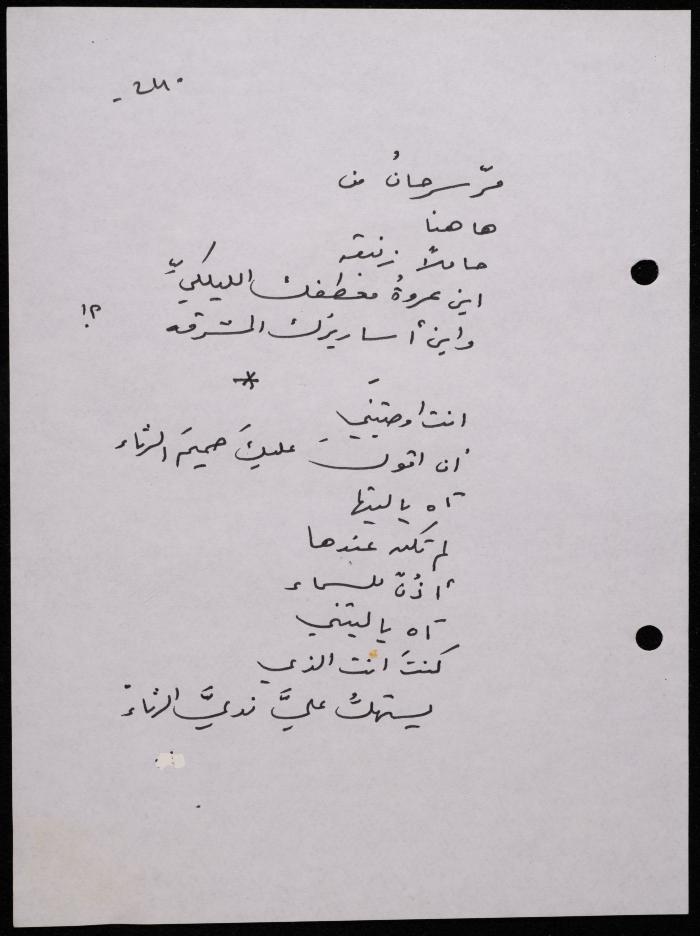 مرّ سرحانُ من
ها هنا
حاملاً زنبقه
اين عروةُ معطفك الليلكيِّ
واين أساريرُك المشرقه ؟!
*
انت اوصيتني
ان اقول عليكَ حميمَ الرثاء
آه يا ليتها
لم تكن عندها
أذُنٌ للسماء
آه يا ليتني
كنتَ انت الذي
يستهلُّ عليَّ نديَّ الرثاءْ